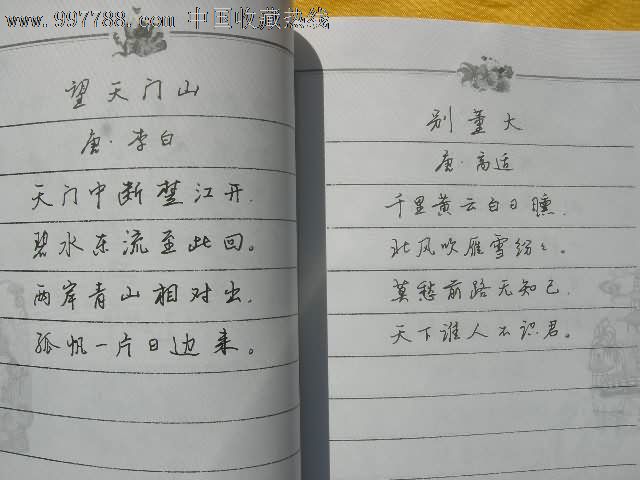 www.997788.com 中国收藏热线
望天门山
唐·李白
天门中断楚江开,
碧水东流至此回。
两岸青山相对出,
孤帆一片日边来。
别董大
唐·高适
千里黄云白日曛,
北风吹雁雪纷々。
莫愁前路无知己,
天下谁人不识君。